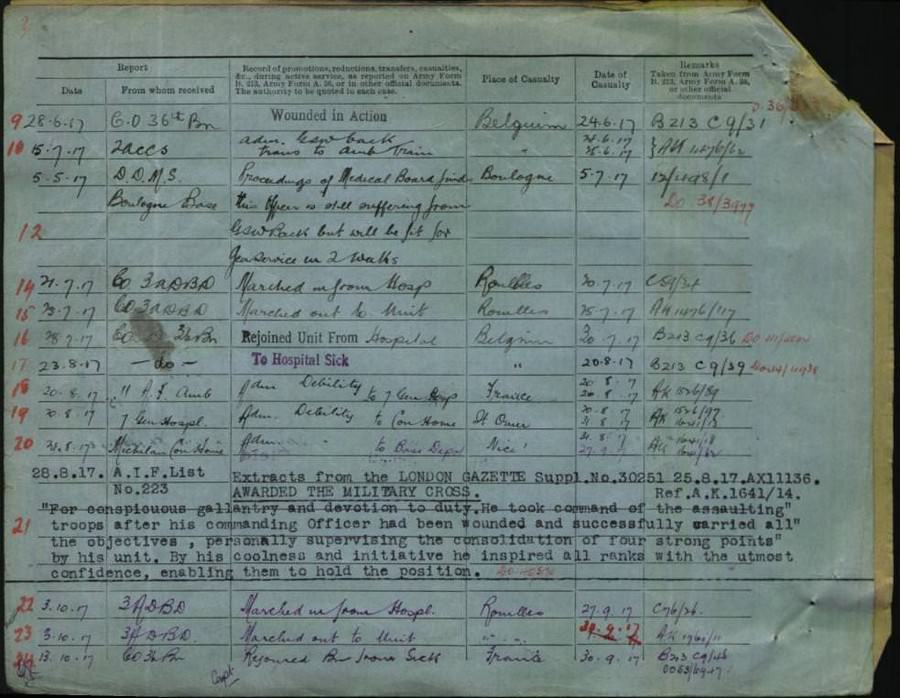 Report
Record of promotions, reductions, transfers, casualties, &c., during active service, as reported on Army Form B. 213, Army Form A. 36, or in other official documents. The authority to be quoted in each case.
Place of Casualty
Date of Casualty
Remarks
Taken from Army Form B. 213, Army Form A. 36, or other official documents
Date From whom received
9 28-6-17 C.O 36th Bn Wounded in Action Belguim 24.6.17 B213 C9/31
10 15-7-17 2ACCS adm. GSW back
trans to Amb Train
5-5-17 D.D.M.S. Proceedings of Medical Board finds Boulogne 5-7-17
Boulogne Base this Officer is still suffering from
12 GSW Back but will be fit for
Gen Service in 2 weeks
14 CO 3ADBD Marched in from Hosp Rouelles
15 CO 3ADBD Marched out to Unit Rouelles
16 Rejoined Unit From Hospital Belgium B213 C9/36
17 23-8-17 - do - To Hospital Sick " 20-8-17 B213 C9/39
18 20-8-17 11 A.F. Amb Adm Debility to 7 Gen Hosp France 20-8-17
19 7 Gen Hospl. Adm. Debility to Con Home St Omer
20 Michelan Con Home Adm. " to Base Depot Nice
28.8.17. A.I.F.List Extracts from the LONDON GAZETTE Suppl.No.30251 25.8.17.AX11136.
No.223 AWARDED THE MILITARY CROSS. Ref.A.K.1641/14.
"For conspicuous gallantry and devotion to duty.He took command of the assaulting"
21 troops after his commanding Officer had been wounded and successfully carried all"
the objectives , personally supervising the consolidation of four strong points"
by his unit. By his coolness and initiative he inspired all ranks with the utmost
confidence, enabling them to hold the position.
22 3.10.17 3ADBD Marched in from Hospl. Rouelles 27.9.17 C76/26.
23 3.10.17 3ADBD. Marched out to Unit " - " 30.9.17
24 13.10.17 CO 36 Bn Rejoined Bn from Sick France 30-9-17 B213 C9/46
Capt